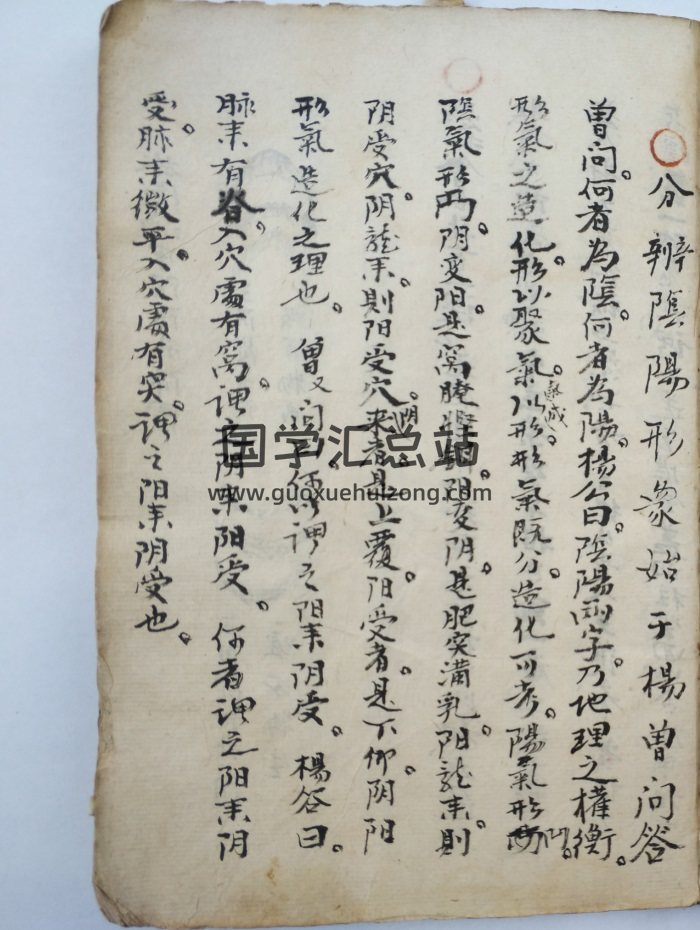 分辨隂陽形象始于楊曾问答
曾问。何者為隂。何者為陽。楊公曰。隂陽兩字。乃地理之權衡。
形氣之造化。形以聚氣。以形。形氣既分。造化可考。陽氣形
隂氣形。阴变阳。是窝阳变阴。是肥突满乳。阳龍来。則
阴受穴。阴龍来。則阳受穴。阴来者是上覆。阳受者是下仰。阴阳
形氣造化之理也。曾又问。何以謂之阳来阴受。楊答曰。
脉来有脊。入穴處有窝。謂之阴来阳受。何者謂之阳来阴
受。脉来微平。入穴處有突。謂之阳来阴受也。
国学汇总站
www.guoxuehuizong.com